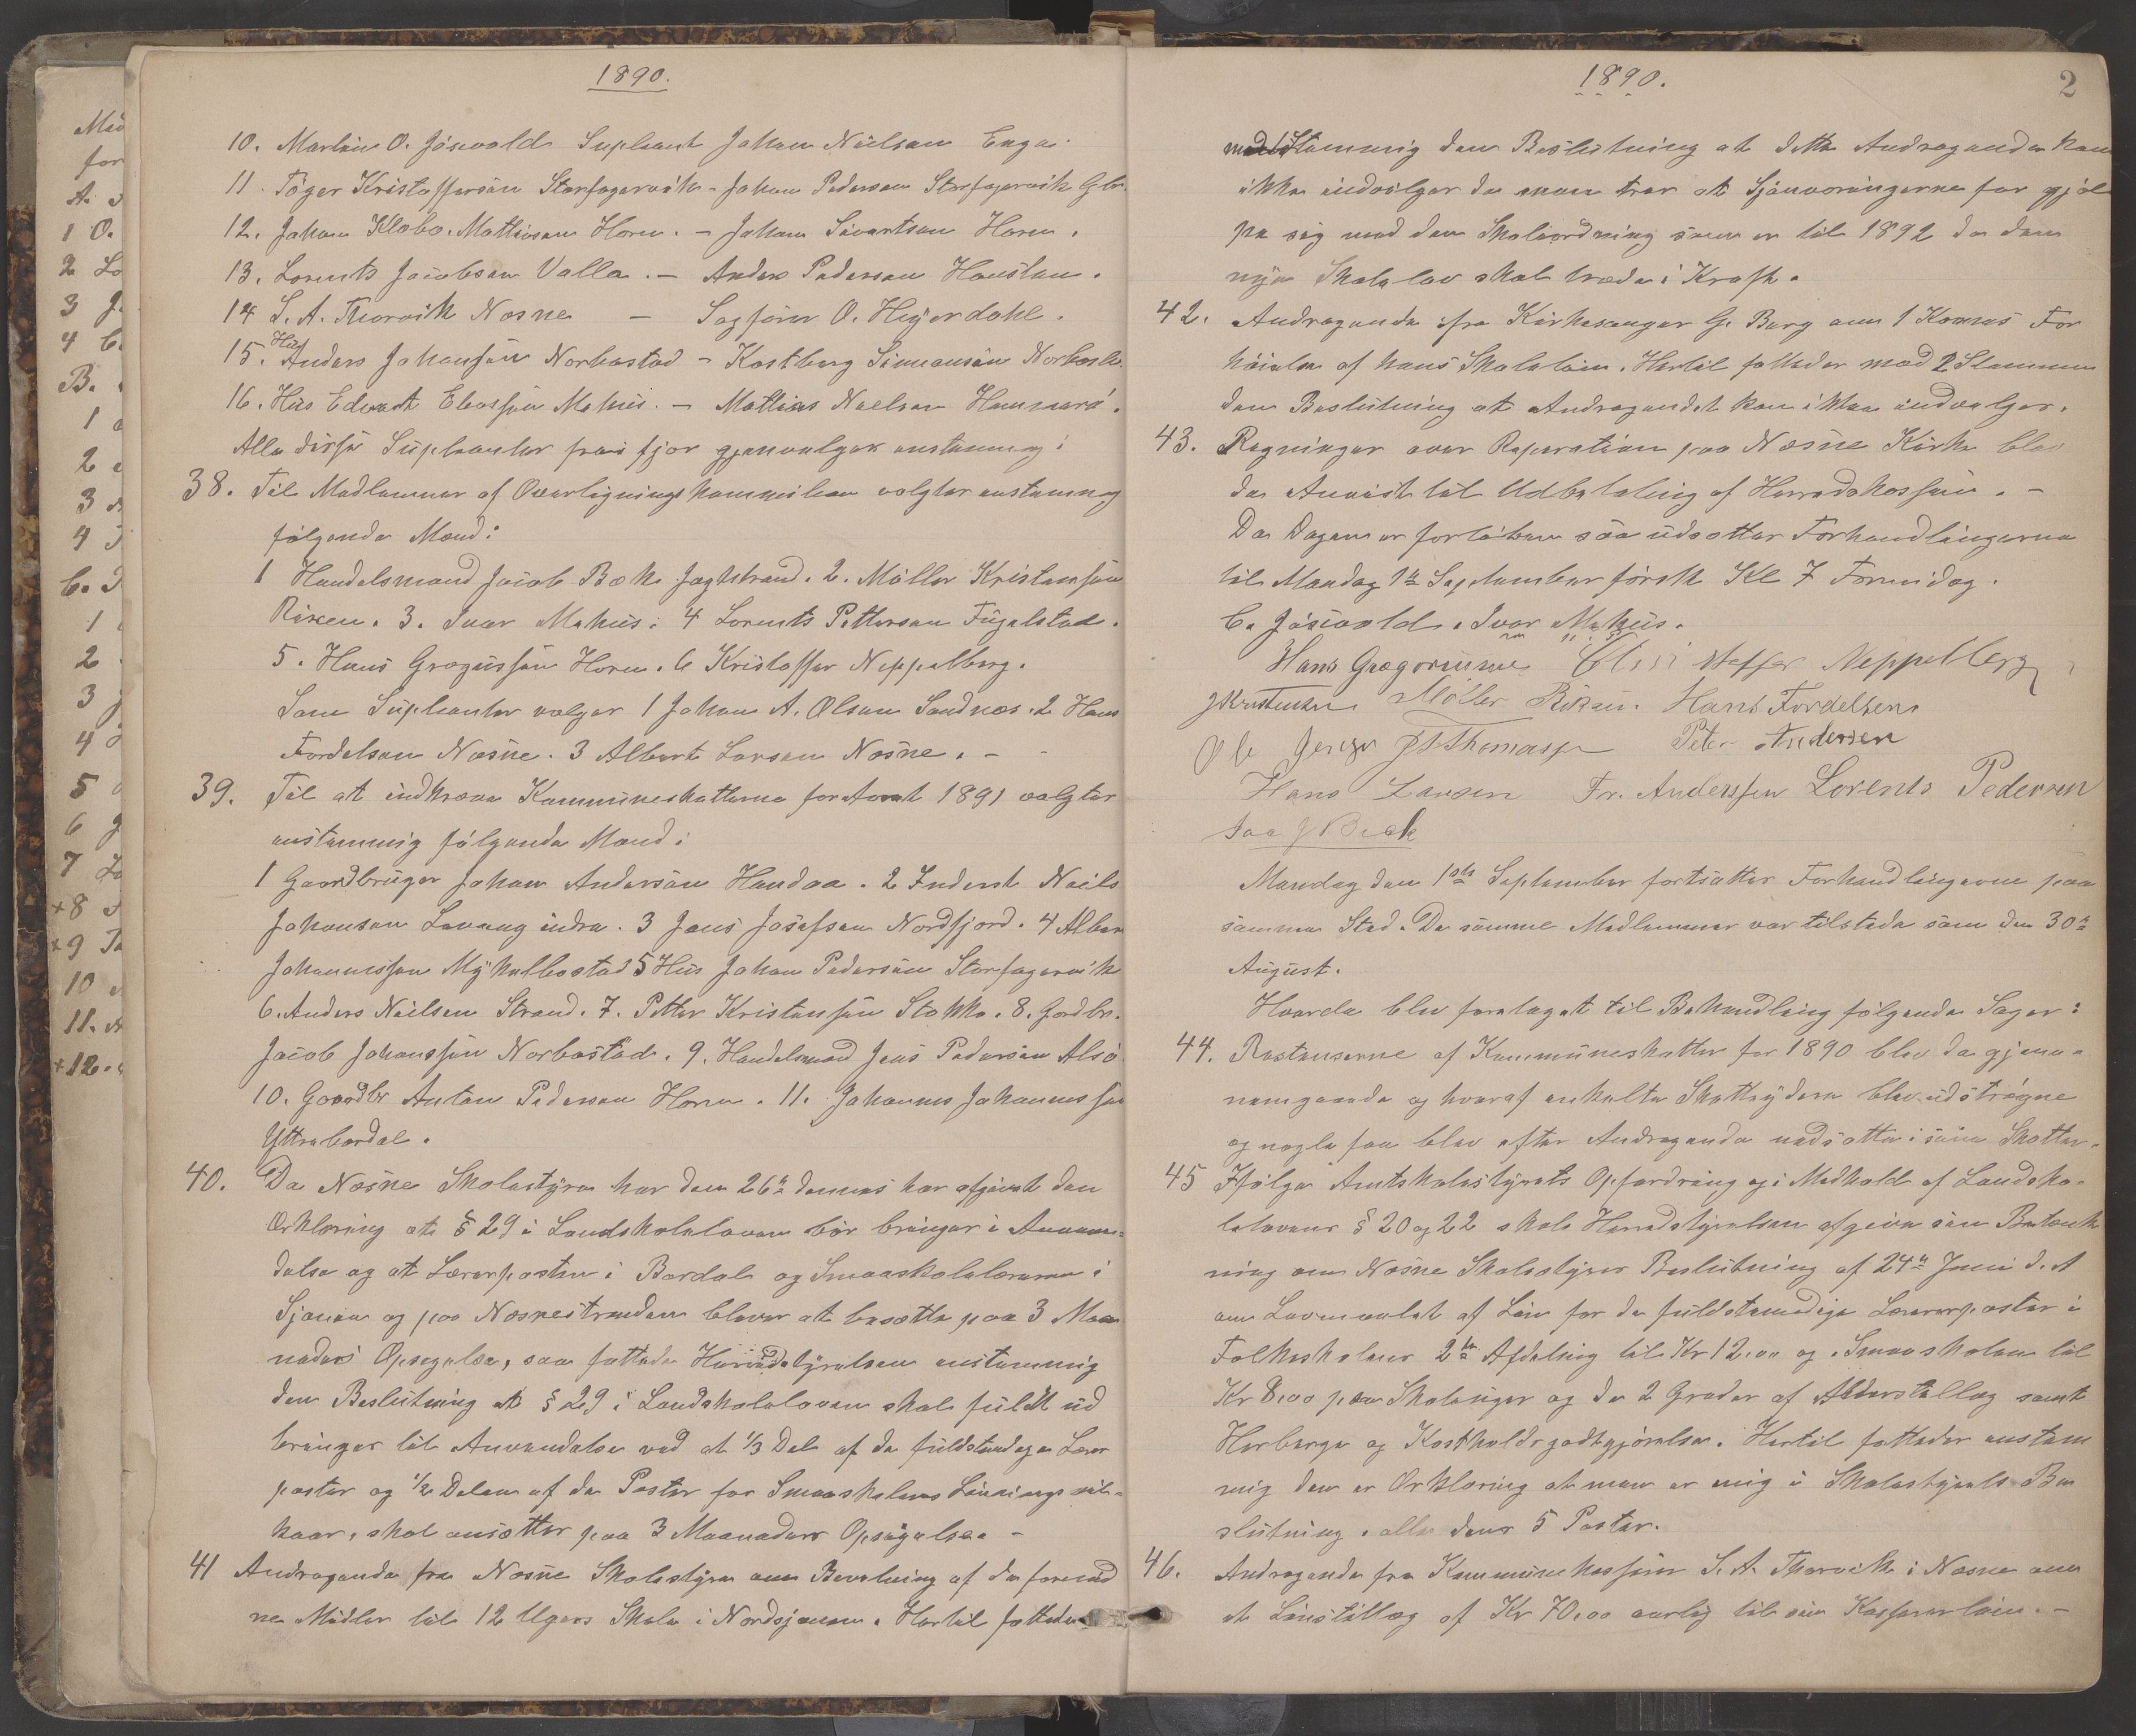 1890.
10. Martin O. Jøsvold Supleant Johan Nielsen Enga.
11. Tøger Kristoffersen Storfagervik - Johan Pedersen Storfagervik Gbr.
12. Johan Klobo. Mathisen Horn. - Johan Sivertsen Horn.
13. Lorents Jacobsen Valla. - Anders Pedersen Haustan.
14 S. A. Thorvik Næsne - Sagfører O. Heyerdahl.
15. Hus Anders Johansen Norbostad - Kastberg Simonsen Norbost.
16. Hus Edvart Eliassen Mehus. - Mathias Nielsen Hammerø.
Alle disse Supleanter fra i fjor gjenvalges enstemmig
38. Til Medlemmer af Overligningskommissionen valgtes enstemmig
følgende Mænd:
1 Handelsmand Jacob Bæk Jagtstrand. 2. Møller Kristensen
Risen. 3. Ivar Mehus. 4 Lorents Pettersen Fuglstad.
5. Hans Gregussen Horn. 6 Kristoffer Neppelberg.
Som Supleanter valges 1 Johan A. Olsen Sandnes. 2 Hans
Fordelsen Næsne. 3 Albert Larsen Næsne. -
39. Til at indkræve Kommuneskatterne for Aaret 1891 valgtes
enstemmig følgende Mænd:
1 Gaardbruger Johan Andersen Handaa. 2 Inderst Neils
Johansen Levang indre. 3 Jens Josefsen Nordfjord. 4 Alber
Johannessen Myklebostad 5 Hus Johan Pedersen Storfagervik
6. Anders Neilsen Strand. 7. Petter Kristensen Stokke. 8. Gordbr.
Jacob Johanssen Norbostad. 9. Handelsmand Jens Pedersen Alsø
10. Gaardbr Anton Pedersen Horn. 11. Johannes Johannessen
Yttrebardal.
40. Da Næsne Skolestyre har den 26de dennes har afgivet den
Erklæring at § 29 i Landskoleloven bør bringes i Anven-
delse og at Lærerposten i Bardal og Smaaskolelærerne i
Sjonen og paa Næsnestranden bliver at besætte paa 3 Maa
neders Opsigelse, saa fattede Herredstyrelsen enstemmig
den Beslutning at § 29 i Landskoleloven skal fuldt ud
bringes til Anvendelse ved at 1/3 Del af de fuldstendige Lærer
poster og 1/2 Delen af de Poster for Smaaskolens Lønningsvil-
kaar, skal ansættes paa 3 Maaneders Opsigelse. -
41 Andragende fra Næsne Skolestyre om Bevilning af de fornød
ne Midler til 12 Ugers Skole i Nordsjonen. Hertil fattedes
1890.
2
enstemmig den Beslutning at dette Andragende kan
ikke indvilges da man tror at Sjonværingerne faar hjæl
pe sig med den Skoleordning som er til 1892 da den
nye Skolelov skal træde i Kraft.
42. Andragende ifra Kirkesanger G. Berg om 1 Krones For
høielse af hans Skoleløn. Hertil fattedes mod 2 Stemmer
den Beslutning at Andragendet kan ikke indvilges.
43. Regninger over Reparation paa Næsne Kirke blev
da Anvist til Udbetaling af Herredskassen. -
Da Dagen er forløben saa udsættes Forhandlingerne
til Mandag 1de September først Kl 7 Formidag.
C. Jøsvold. Ivar Mehus.
Hans Gregoriussen Christoffer Neppelberg
J Kristensen Møller Risen. Hans Fordelsen
Ole Jensen Thomassen Peter Andersen
Hans Larsen Fr. Anderssen Lorents Pedersen
Jac J Bæck
Mandag den 1ste September fortsattes Forhandlingerne paa
samme Sted. De samme Medlemmer var tilstede som den 30te
August.
Hvorda blev foretaget til Behandling følgende Sager:
44. Restanserne af Kommuneskatter for 1890 blev da gjenn-
nemgaaede og hvoraf enkelte Skatteydere blev udstrøgne
og nogle faa blev efter Andragende nedsatte i sine Skatter.
45 Ifølge Amtskolestyrets Opfordring og i Medhold af Landsko-
lelovens § 20 og 22 skal Herredstyrelsen afgive sin Betænk
ning om Næsne Skolestyres Beslutning af 24de Juni d. A
om Lovmaalet af Løn for de fuldstændige Lærerposter i
Folkeskolens 2den Afdeling til Kr 12.00 og Smaaskolen til
Kr 8.00 per Skoleuge og de 2 Grader af Alderstillæg samt
Herberge og Kostholdsgodtgjørelse. Hertil fattedes enstem
mig den er Erklæring at man er enig i Skolestyrets Be
slutning alle dens 5 Poster.
46. Andragende fra Kommunekasserer S. A. Thorvik i Næsne om
et Lønstillæg af Kr 70.00 aarlig til sin Kassererløn. -